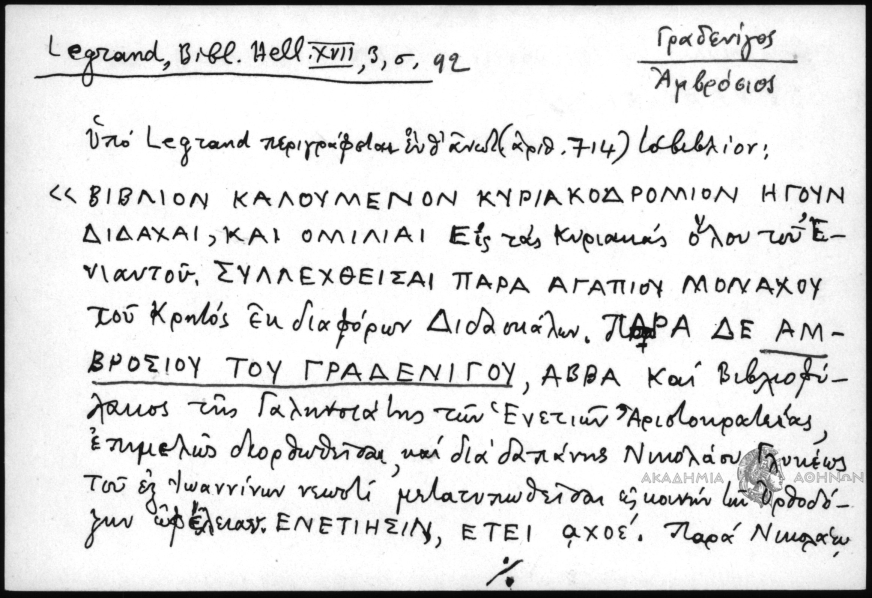 Legrand, Bibl. Hell. XVII, 3, σ. 92
Γραδενίγος
Ἀμβρόσιος
ὑπό Legrand περιγράφεται ἐνθ' ἀνωτ. (ἀριθ. 714) τό βιβλίον:
<< ΒΙΒΛΙΟΝ ΚΑΛΟΥΜΕΝΟΝ ΚΥΡΙΑΚΟΔΡΟΜΙΟΝ ΗΓΟΥΝ
ΔΙΔΑΧΑΙ, ΚΑΙ ΟΜΙΛΙΑΙ Εἰς τάς Κυριακάς ὅλου τοῦ Ἐ-
νιαυτοῦ. ΣΥΛΛΕΧΘΕΙΣΑΙ ΠΑΡΑ ΑΓΑΠΙΟΥ ΜΟΝΑΧΟΥ
τοῦ Κρητός ἐκ διαφόρων Διδασκάλων. ΠΑΡΑ ΔΕ ΑΜ-
ΒΡΟΣΙΟΥ ΤΟΥ ΓΡΑΔΕΝΙΓΟΥ, ΑΒΒΑ καί Βιβλιοφύ-
λακος τῆς Γαληνοτάτης τῶν Ἐνετιῶν Ἀριστοκρατείας,
ἐπιμελῶς διορθωθεῖσαι, καί διά δαπάνης Νικολάου Γλυκέως
τοῦ ἐξ Ἰωαννίνων νεωστί μετατυπωθεῖσαι εἰς κοινήν τῶν Ὀρθοδό-
ξων ὠφέλειαν. ΕΝΕΤΙΗΣΙΝ, ΕΤΕΙ ͵αχοέ. Παρά Νικολάῳ
%
ΑΚΑΔΗΜΙΑ ΑΘΗΝΩΝ